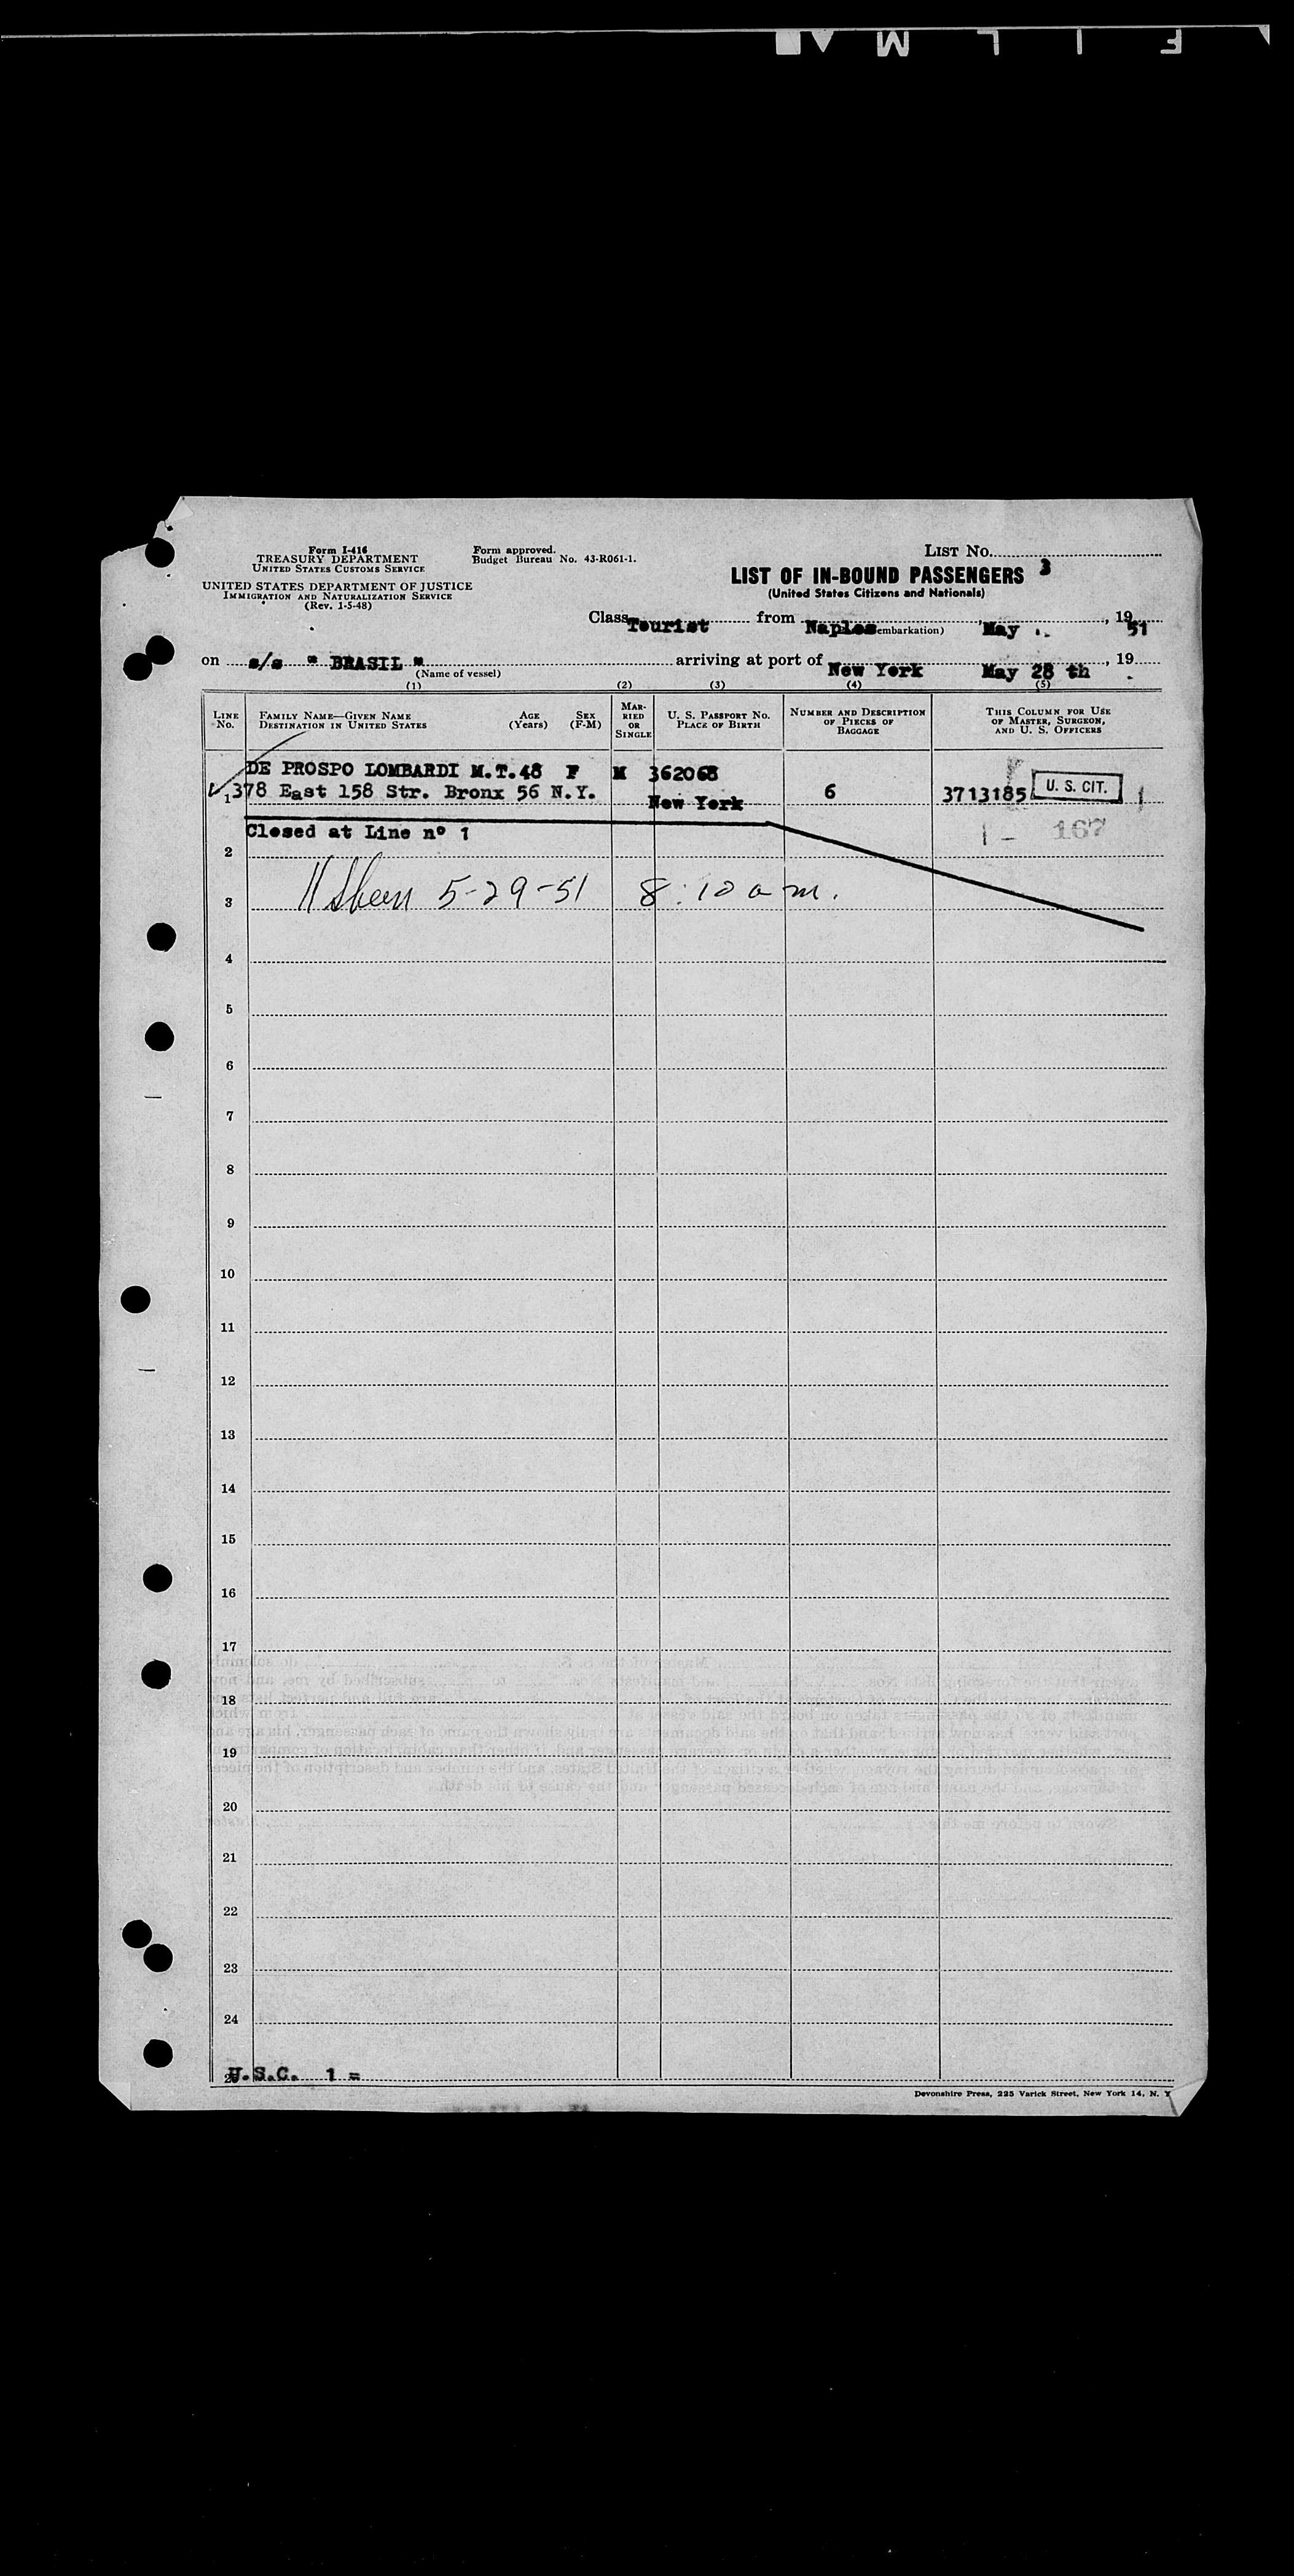 F I L M
Form I-416
TREASURY DEPARTMENT
UNITED STATES CUSTOMS SERVICE
UNITED STATES DEPARTMENT OF JUSTICE
IMMIGRATION AND NATURALIZATION SERVICE
(Rev. 1-5-48)
Form approved.
Budget Bureau No. 43-R061-1.
LIST NO. 3
LIST OF IN-BOUND PASSENGERS
(United States Citizens and Nationals)
Class Tourist from Naples embarkation) May , 19 51
on s/s " BRASIL " arriving at port of New York May 28 th , 19
(Name of vessel)
(1) (2) (3) (4) (5)
LINE NO. FAMILY NAME—GIVEN NAME DESTINATION IN UNITED STATES AGE (Years) SEX (F-M) MARRIED OR SINGLE U. S. PASSPORT NO. PLACE OF BIRTH NUMBER AND DESCRIPTION OF PIECES OF BAGGAGE THIS COLUMN FOR USE OF MASTER, SURGEON, AND U. S. OFFICERS
DE PROSPO LOMBARDI M.T. 48 F M 362068
1 378 East 158 Str. Bronx 56 N.Y. New York 6 3713185 U. S. CIT.
Closed at Line nº 1 1 - 167
2
5-29-51 8:10 a m.
3
4
5
6
7
8
9
10
11
12
13
14
15
16
17
18
19
20
21
22
23
24
U.S.C. 1 =
Devonshire Press, 225 Varick Street, New York 14, N. Y.